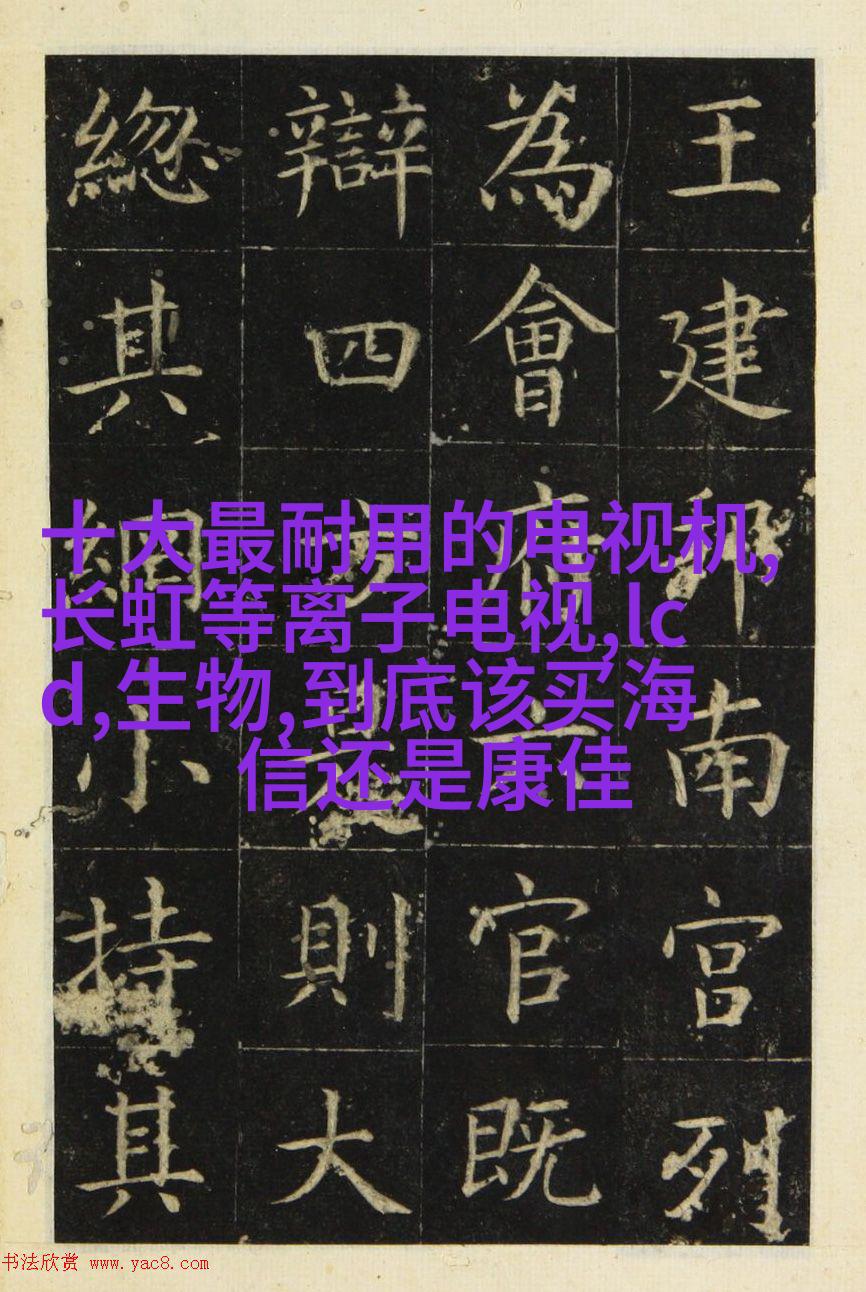 十大最耐用的电视机,
长虹等离子电视,lc
d,生物,到底该买海
信还是康佳
王建邦南宫列
為會府六官既
辯四方是則大
緫其綱小持其
书法欣赏 www.yac8.com